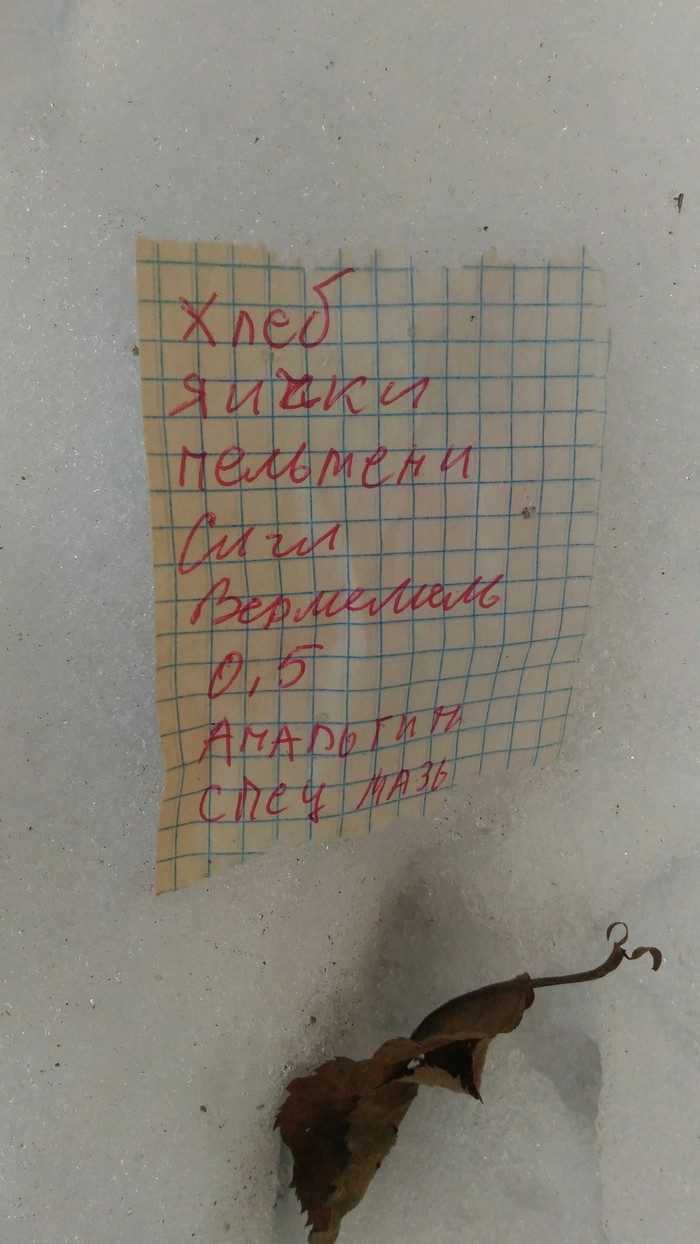 Хлеб
яички
пельмени
Сиги
Вермемель
0,5
Анальгин
спец мазь